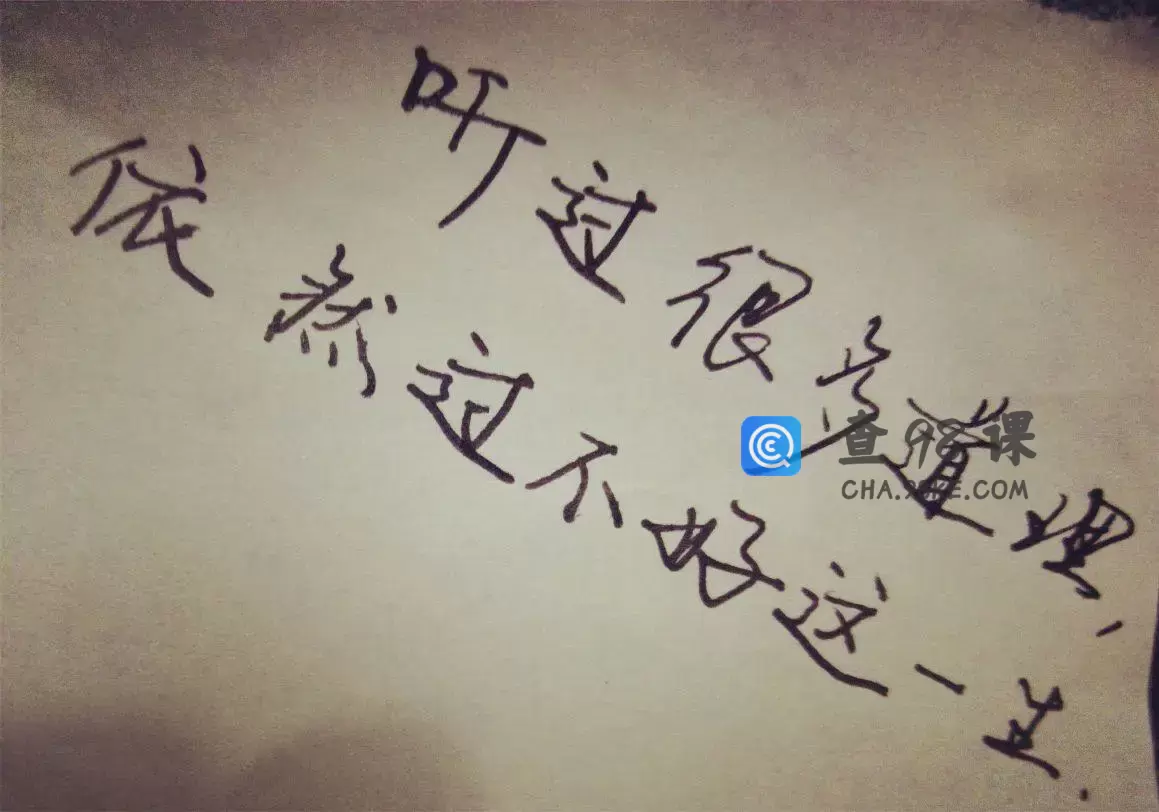 听过很多道理，
依然过不好这一生.
查98课
CHA.98KE.COM